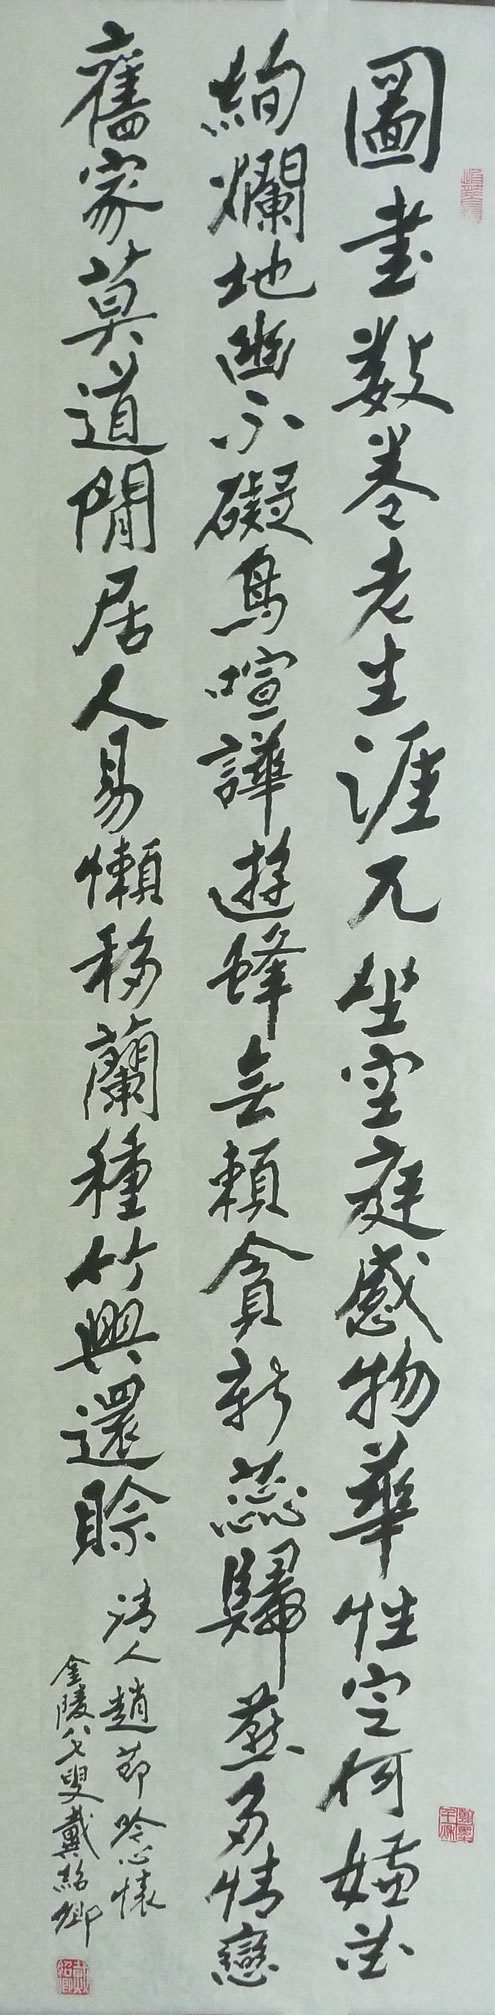 圖書数卷老生涯兀坐空庭感物華性定何嫌花
絢爛地幽不礙鳥喧譁遊蜂無賴貪新蕊歸燕多情戀
舊家莫道閒居人易懶移蘭種竹興還賒
清人趙節吟心懷
金陵八七叟戴紹卿